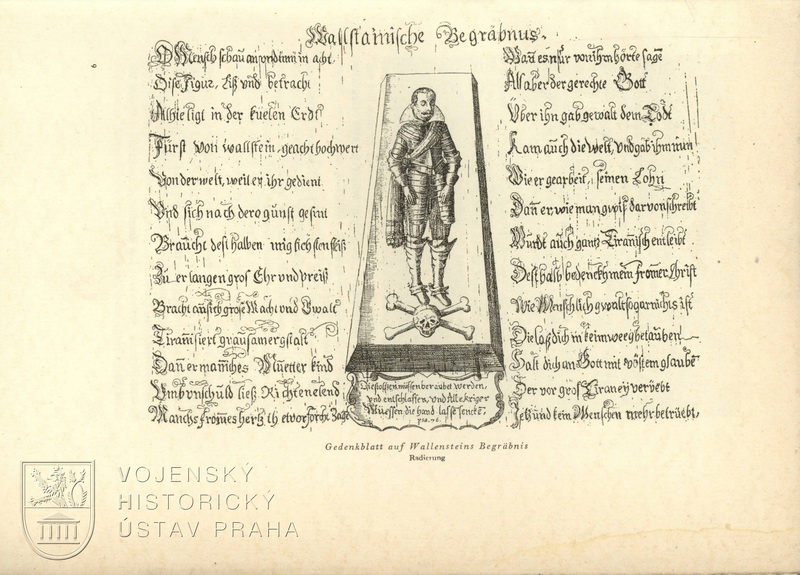 Wallstainische Begräbnus.
O Mensch schau an und nim in acht
Dise Figur, liß vnd betracht
Alhie ligt in der kuelen Erdt
Fürst von wallstein, geacht hochwert
Von der welt, weil er ihr gedient
Vnd sich nach dero gunst gesint
Braucht desthalben
Zu erlangen gros Ehr vnd preiß
Bracht an sich große Macht vnd Gwalt
Tiranisiert grausamer gstalt
Dan er manches Muetter kind
Vmb vnschuld ließ Richten elend
Manchs fromes hertz
Die stoltzen müssen beraubet werden,
vnd entschlaffen, vnd Alle kriger
Müessen die hand lasse sencke.
Wan es nur von ihm horte sage
Aber der gerechte Gott
Über ihn gab gewalt dem Todt
Kam auch die welt, vnd gab ihm nun
Wie er gearbeit, seinen Lohn
Dan er wie man gwiß darvon schreibt
Wurde auch gantz Tiranisch entleibt
Desthalb bedenck mein fromer Christ
Wie Menschlich gar nichts ist
Die laß dich in keim weeg betauben
Halt dich an Gott mit vöstem glaube
Der vor gros Tiraney veriebt
Jetzund kein Menschen mehr betriebt,
Gedenkblatt auf Wallensteins Begräbnis
Radierung
VOJENSKÝ
HISTORICKÝ
ÚSTAV PRAHA